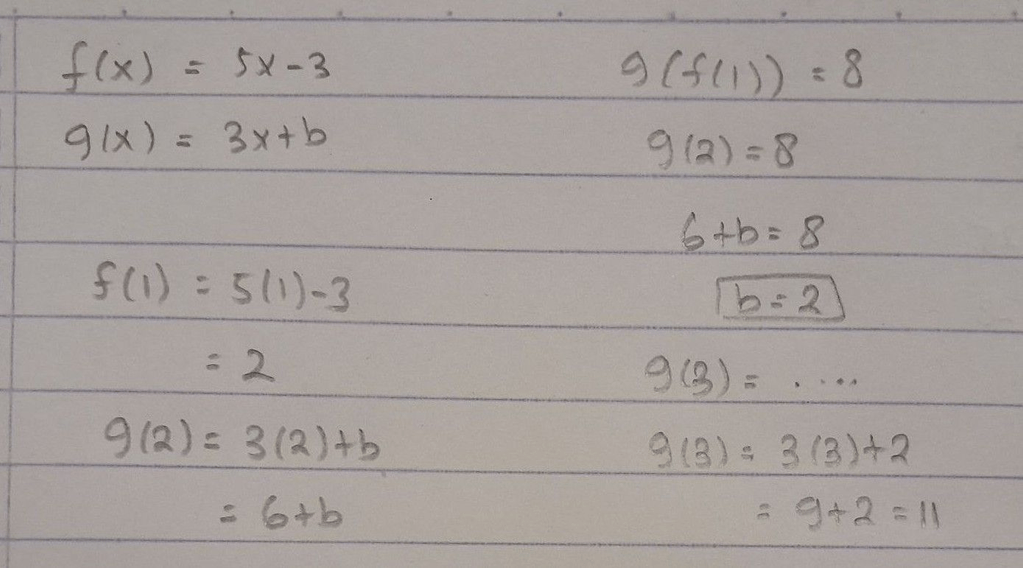 f(x) = 5x-3
g(x) = 3x+b
f(1) = 5(1)-3
= 2
g(2) = 3(2)+b
= 6+b
g(f(1)) = 8
g(2) = 8
6+b = 8
b = 2
g(3) = ....
g(3) = 3(3)+2
= 9+2 = 11